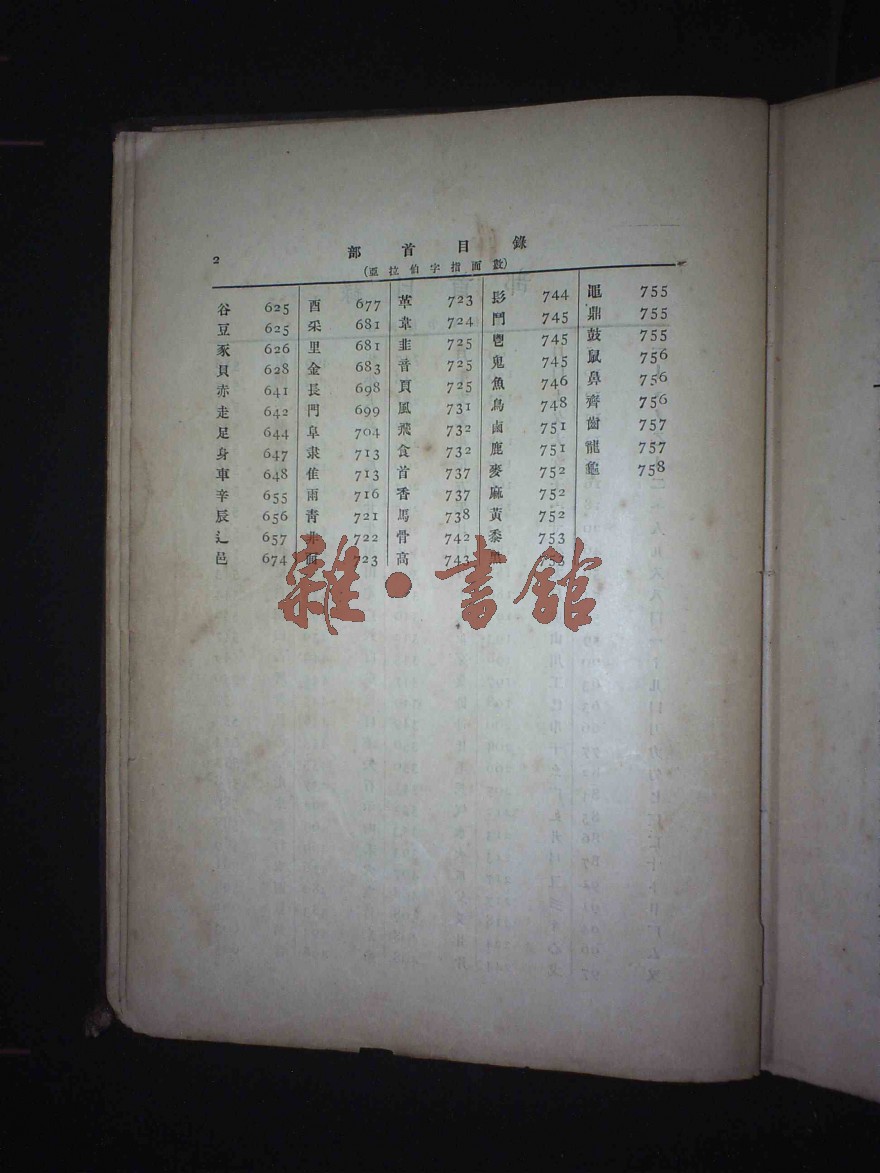 2
部首目錄
(亞拉伯字指面數)
谷 625
豆 625
豕 626
貝 628
赤 641
走 642
足 644
身 647
車 648
辛 655
辰 656
辶 657
邑 674
酉 677
釆 681
里 681
金 683
長 698
門 699
阜 704
隶 713
隹 713
雨 716
青 721
非 722
面 723
革 723
韋 724
韭 725
音 725
頁 725
風 731
飛 732
食 732
首 737
香 737
馬 738
骨 742
高 743
髟 744
鬥 745
鬯 745
鬼 745
魚 746
鳥 748
鹵 751
鹿 751
麥 752
麻 752
黃 752
黍 753
753
黽 755
鼎 755
鼓 755
鼠 756
鼻 756
齊 756
齒 757
龍 757
龜 758
雜·書館